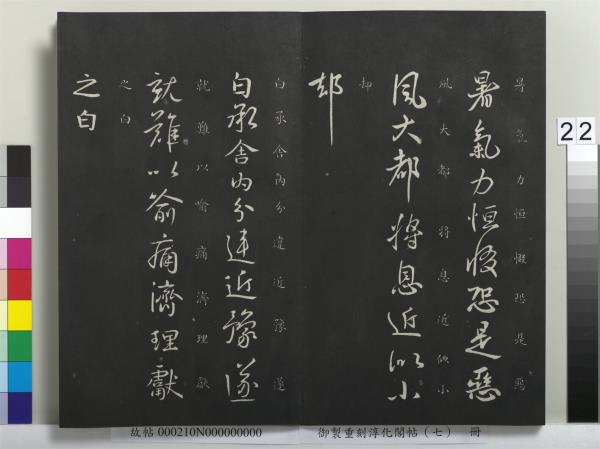 暑氣力恒惙恐是惡
暑氣力恒惙恐是惡
風大都將息近似小
風大都將息近似小
却
却
白承舍內分違近豫遂
白承舍內分違近豫遂
就難以喻痛濟理獻
就難以喻痛濟理獻
之白
之白
22
故帖 000210N000000000
御製重刻淳化閣帖（七） 冊